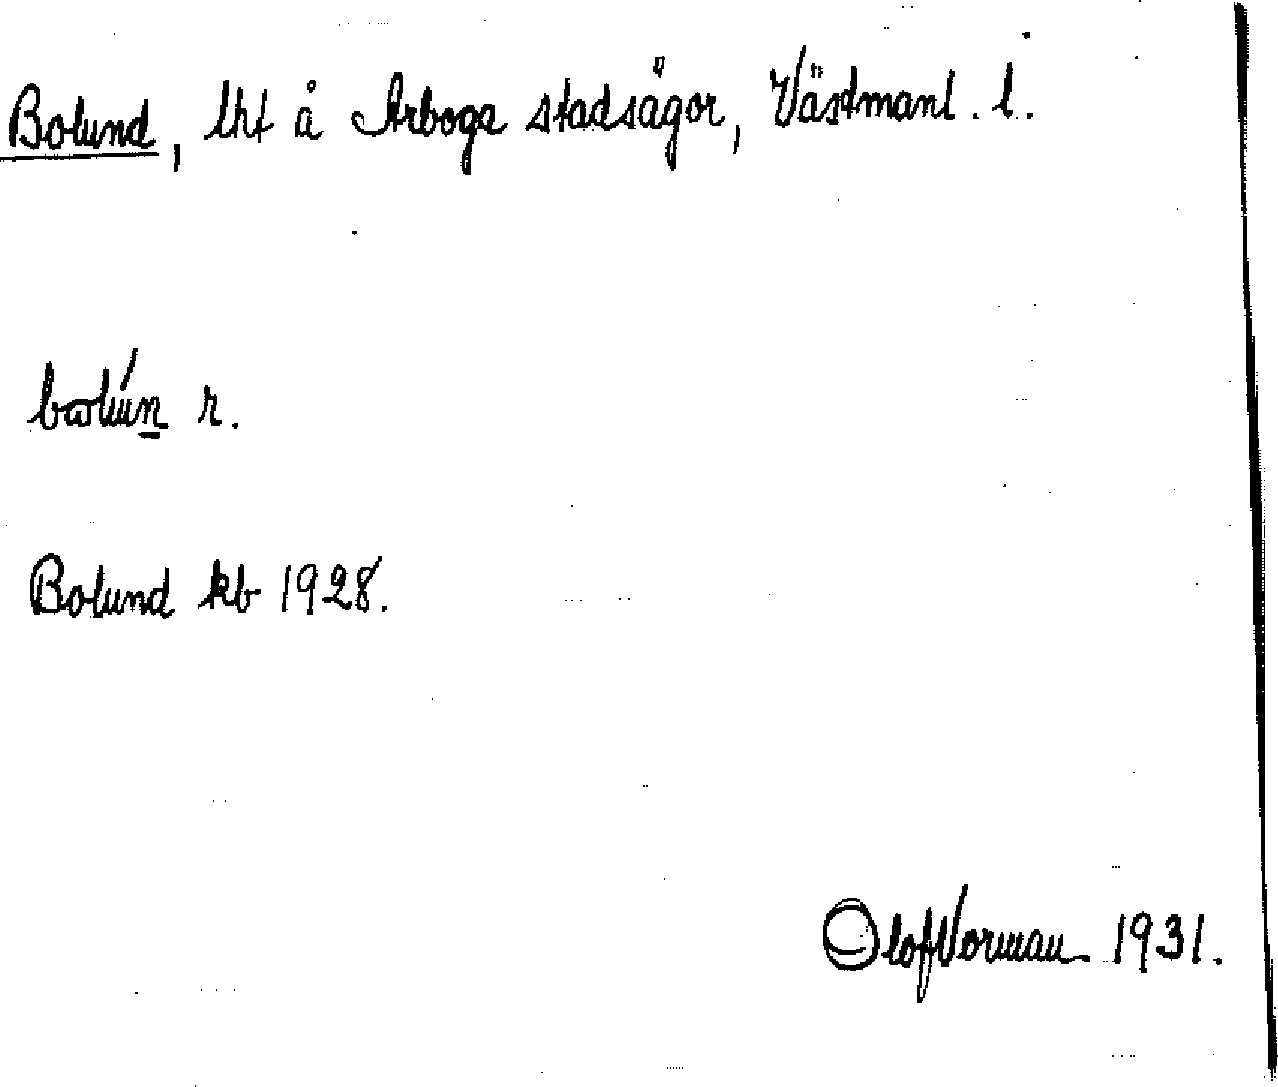 Bolund, lht å Arboga stadsägor, Västmanl. l.
r.
Bolund kb 1928.
Olof Norman 1931.